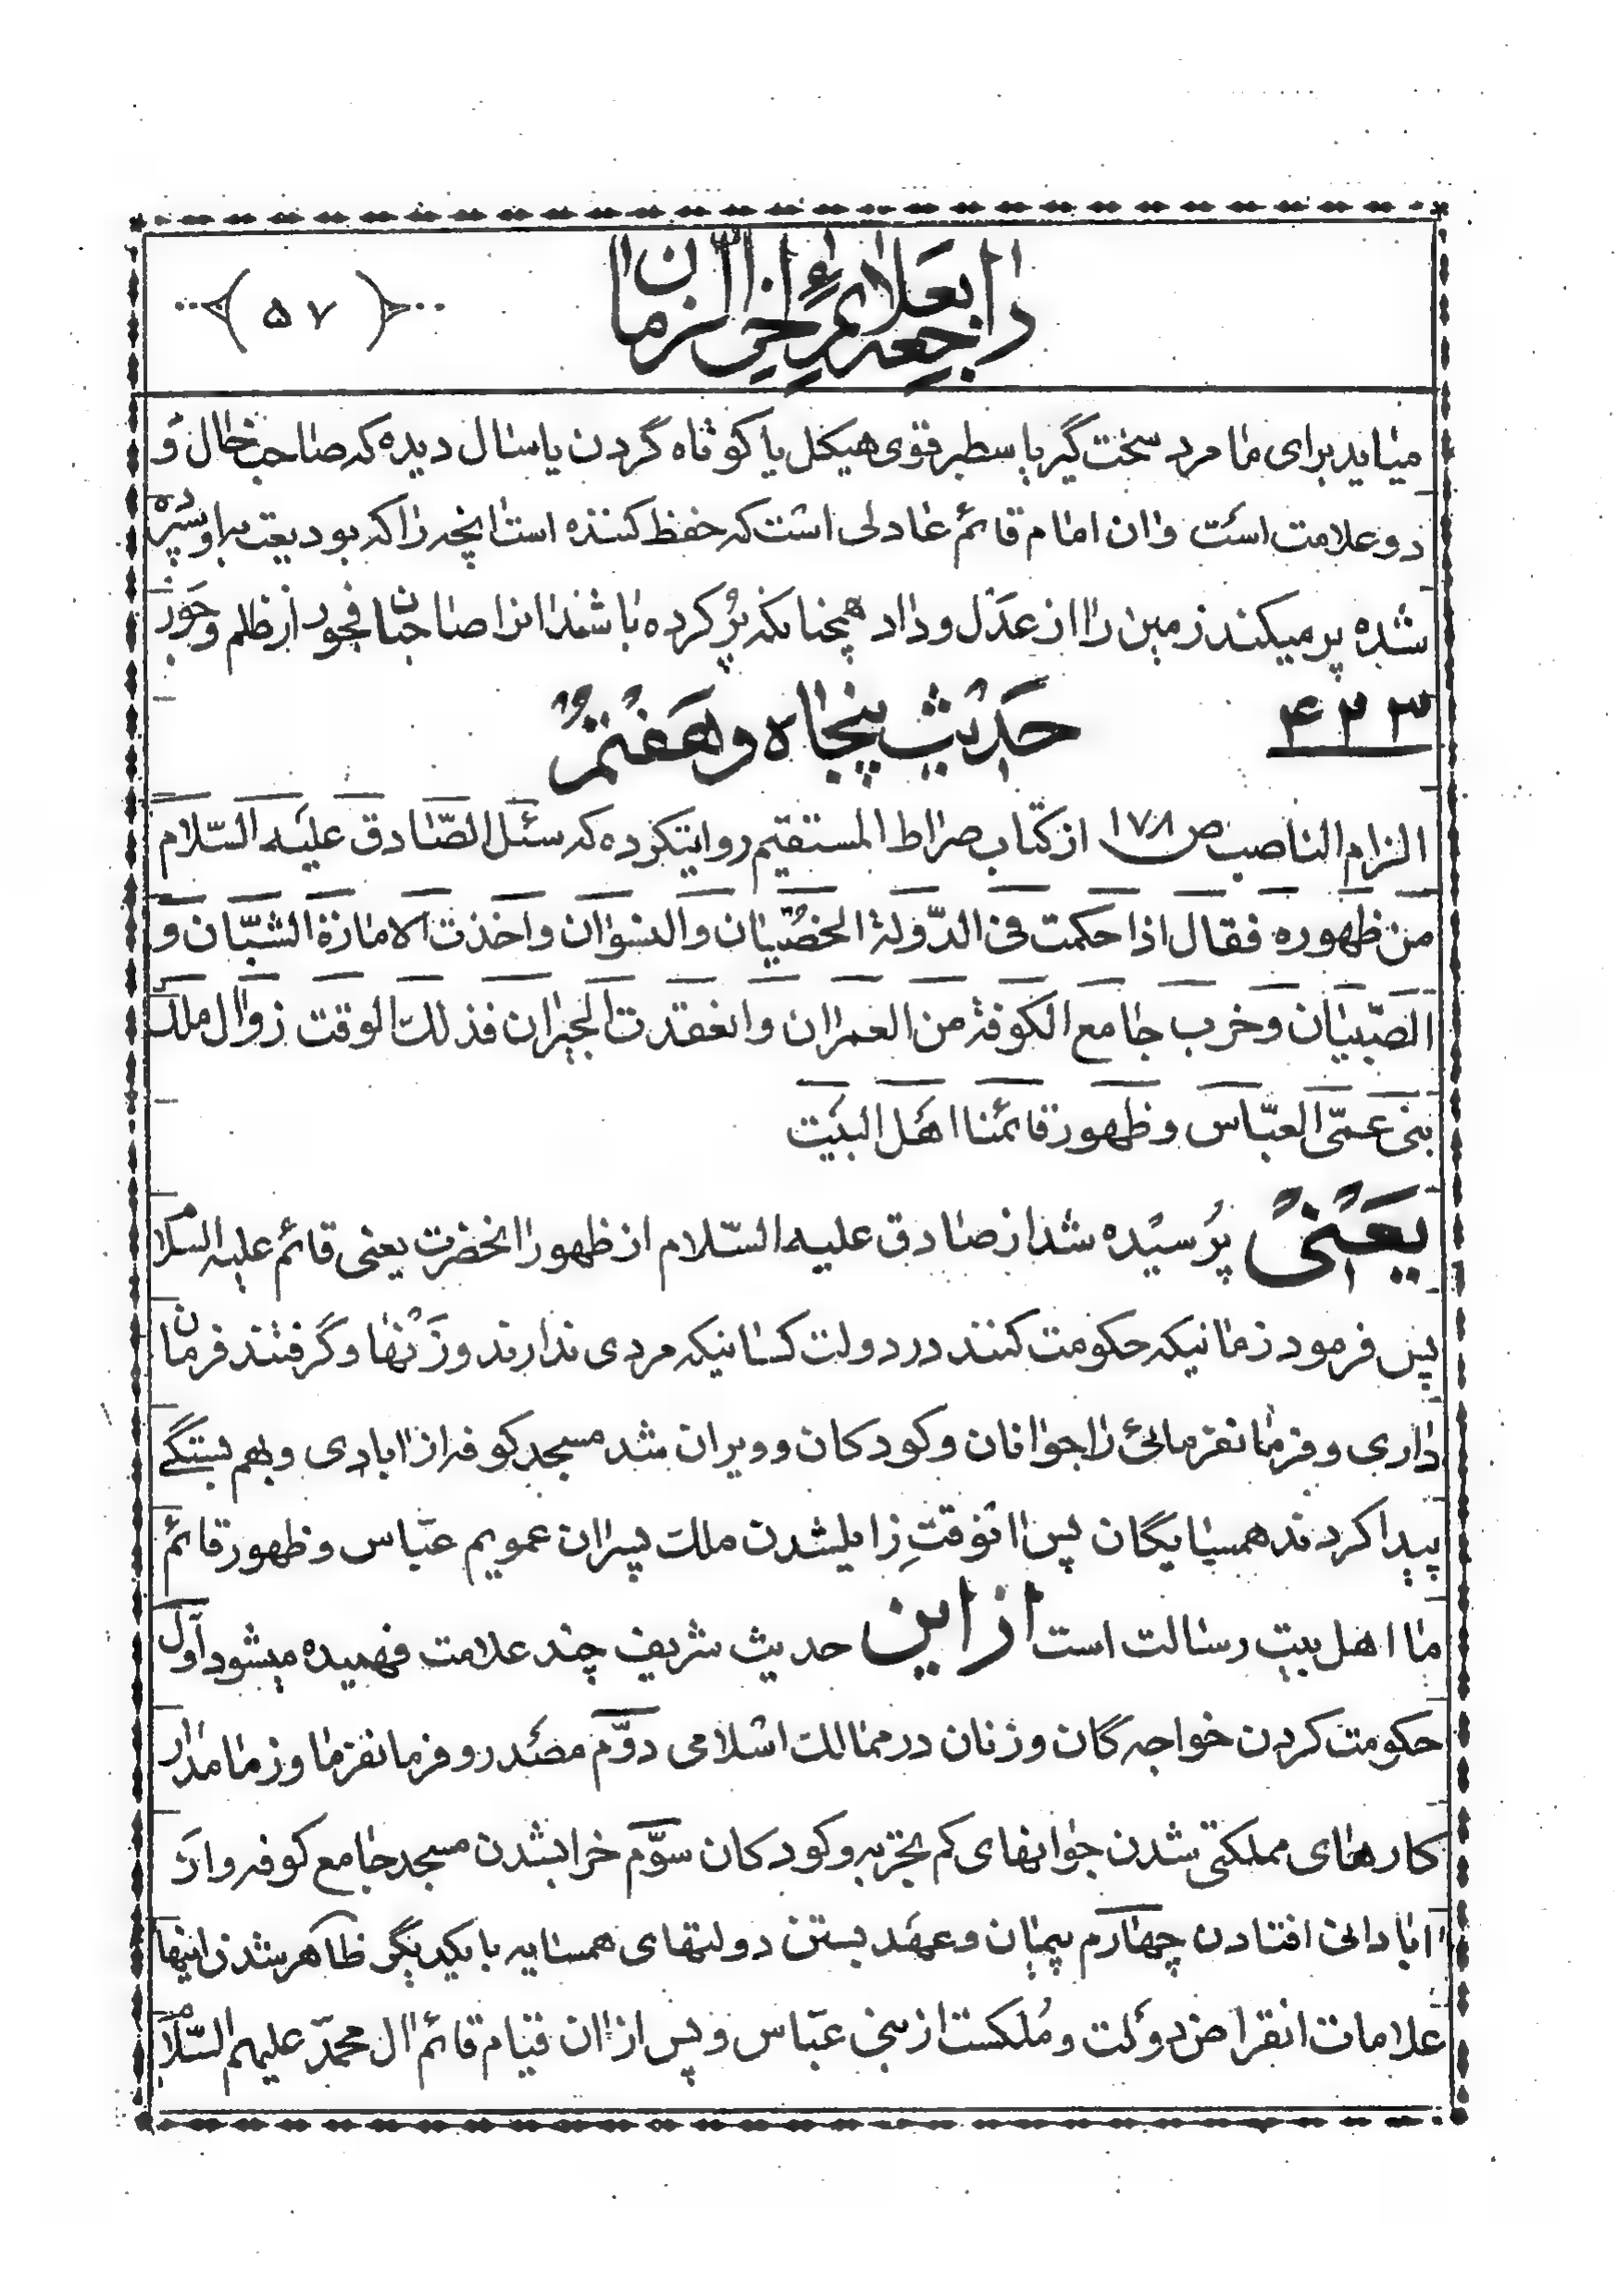 راجعه بعلائم آخر الزمان
﴿ ۵۷ ﴾
میاید برای ما مرد سخت گیر با سطبر قوی هیکل یا کوتاه گردن یا سال دیده که صاحب خال و
دو علامت است وان امام قائم عادلی است که حفظ کننده است انچه را که بودیعت باو سپرده
شده پر میکند زمین را از عدل و داد همچنانکه پُر کرده باشند انرا صاحبان فجور از ظلم وجور
۴۲۳ حدیث پنجاه و هفتم
الزام الناصب ص ۱۷۸ از کتاب صراط المستقیم روایتکرده که سئل الصّادق علیه السّلام
من ظهوره فقال اذا حکمت فی الدّولة الخصّیان والنسوان واخذت الامارة الشبّان و
الصّبیان وخرب جامع الکوفة من العمران وانعقدت الجیران فذلک الوقت زوال ملک
بنی عمّی العبّاس وظهور قائمنا اهل البیت
یعنی پرسیده شد از صادق علیه السّلام از ظهور انحضرت یعنی قائم علیه السلام
پس فرمود زمانیکه حکومت کنند در دولت کسانیکه مردی ندارند وزنها وگرفتند فرمان
داری و فرمانفرمائی را جوانان وکودکان وویران شد مسجد کوفه از ابادی وبهم بستگی
پیدا کردند همسایگان پس انوقتِ زایلشدن ملک پسران عمویم عبّاس وظهور قائم
ما اهل بیت رسالت است از این حدیث شریف چند علامت فهمیده میشود اوّل
حکومت کردن خواجه گان وزنان در ممالک اسلامی دوّم مصدر وفرمانفرما وزمامدار
کارهای مملکتی شدن جوانهای کم تجربه وکودکان سوّم خرابشدن مسجد جامع کوفه واز
ابادانی افتادن چهارم پیمان وعهد بستن دولتهای همسایه با یکدیگر ظاهر شدن اینها
علامات انقراض دولت ومُلکست از بنی عبّاس وپس از ان قیام قائم ال محمّد علیهم السّلام